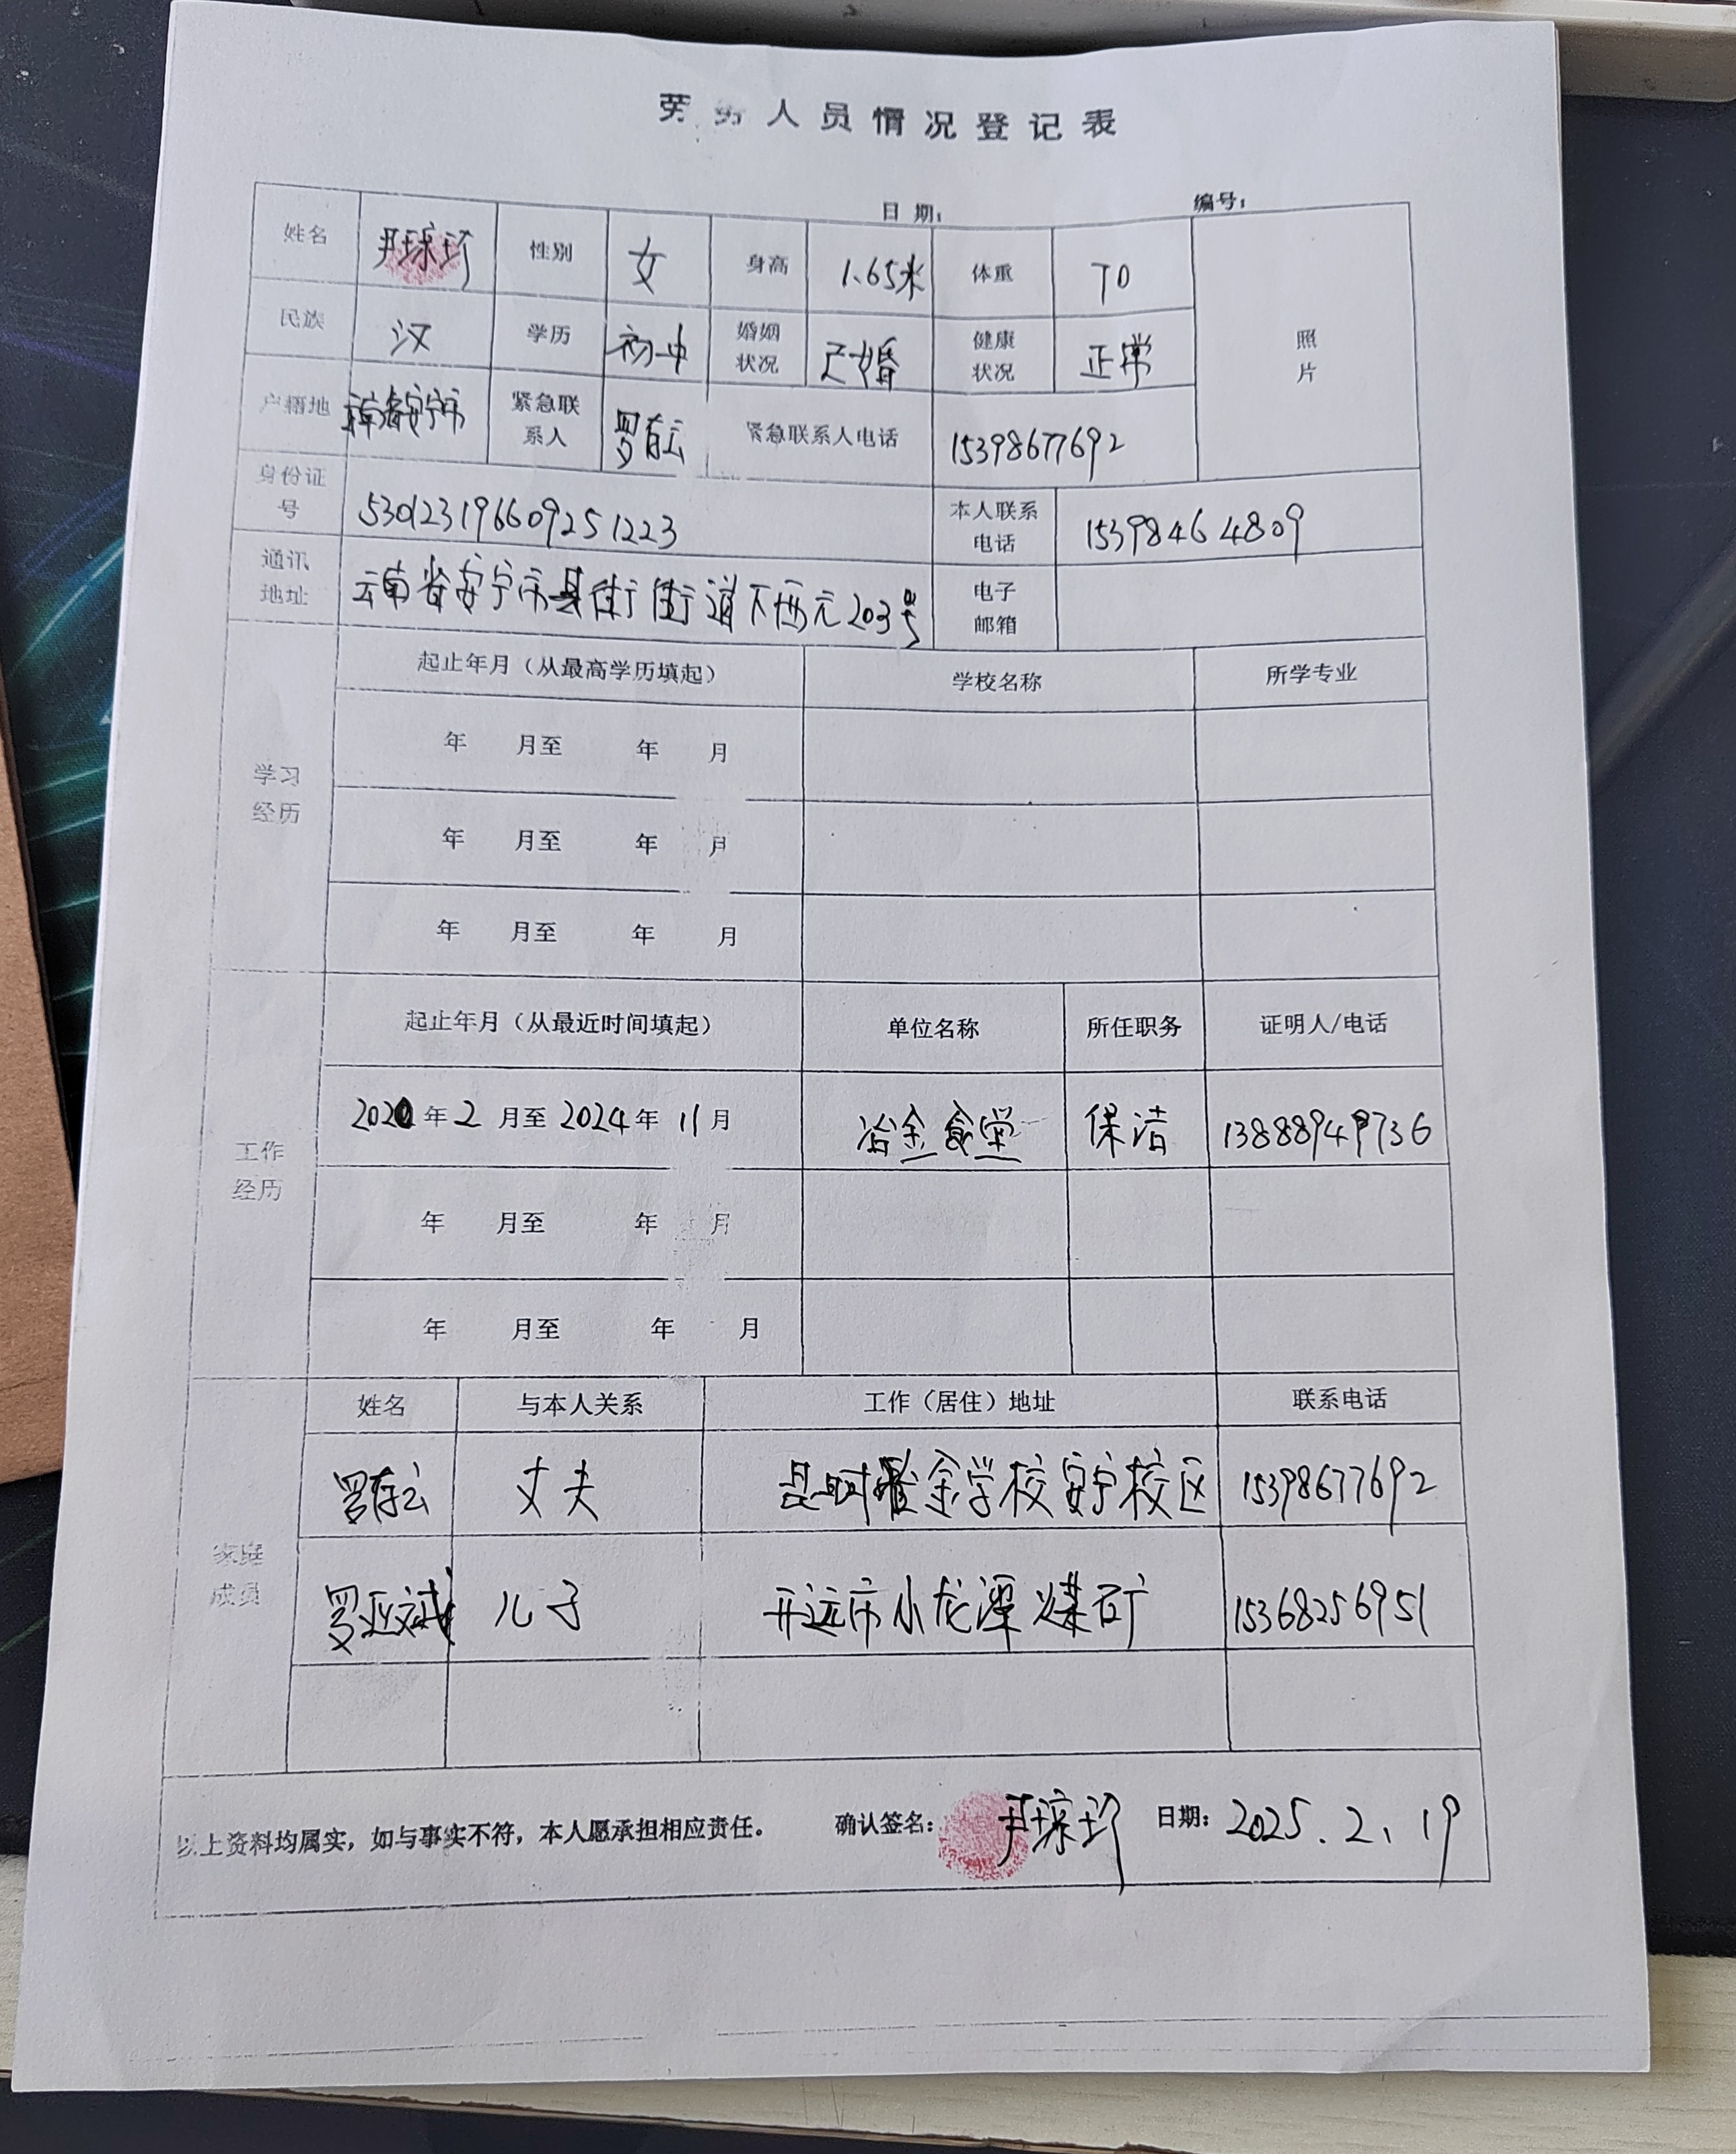 劳务人员情况登记表
日期： 编号：
姓名 尹琼珍 性别 女 身高 1.65米 体重 70 照片
民族 汉 学历 初中 婚姻状况 已婚 健康状况 正常
户籍地 云南省安宁市 紧急联系人 罗存云 紧急联系人电话 15398677692
身份证号 530123196609251223 本人联系电话 15398464809
通讯地址 云南省安宁市县街街道下西元203号 电子邮箱
学习经历 起止年月（从最高学历填起） 学校名称 所学专业
年 月至 年 月
年 月至 年 月
年 月至 年 月
工作经历 起止年月（从最近时间填起） 单位名称 所任职务 证明人/电话
2020年2月至2024年11月 冶金食堂 保洁 13888949736
年 月至 年 月
年 月至 年 月
家庭成员 姓名 与本人关系 工作（居住）地址 联系电话
罗存云 丈夫 昆明冶金学校安宁校区 15398677692
罗亚斌 儿子 开远市小龙潭煤矿 15368256951
以上资料均属实，如与事实不符，本人愿承担相应责任。 确认签名： 尹琼珍 日期：2025.2、19